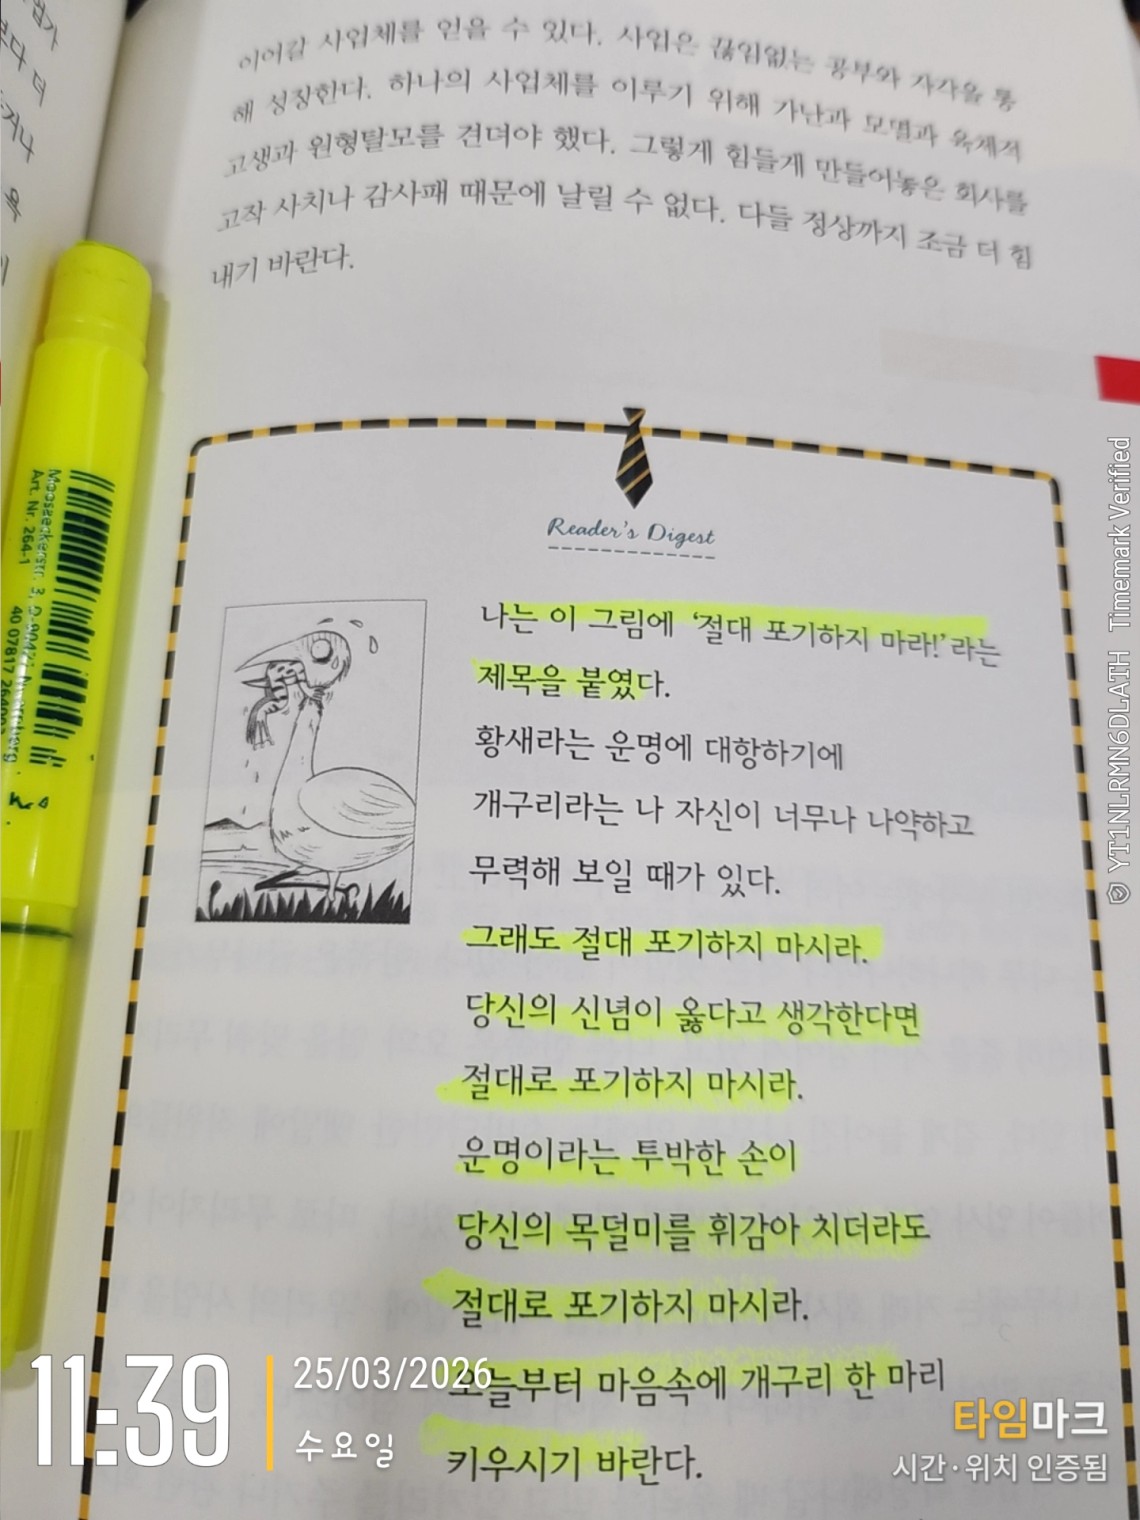 이어갈 사업체를 얻을 수 있다. 사업은 끊임없는 공부와 자각을 통
해 성장한다. 하나의 사업체를 이루기 위해 가난과 모멸과 육체적
고생과 원형탈모를 견뎌야 했다. 그렇게 힘들게 만들어놓은 회사를
고작 사치나 감사패 때문에 날릴 수 없다. 다들 정상까지 조금 더 힘
내기 바란다.
Reader's Digest
나는 이 그림에 '절대 포기하지 마라!'라는
제목을 붙였다.
황새라는 운명에 대항하기에
개구리라는 나 자신이 너무나 나약하고
무력해 보일 때가 있다.
그래도 절대 포기하지 마시라.
당신의 신념이 옳다고 생각한다면
절대로 포기하지 마시라.
운명이라는 투박한 손이
당신의 목덜미를 휘감아 치더라도
절대로 포기하지 마시라.
오늘부터 마음속에 개구리 한 마리
키우시기 바란다.
Art. Nr. 264-1
11:39
25/03/2026
수요일
타임마크
시간·위치 인증됨
YT1NLRMN6DLATH Timemark Verified